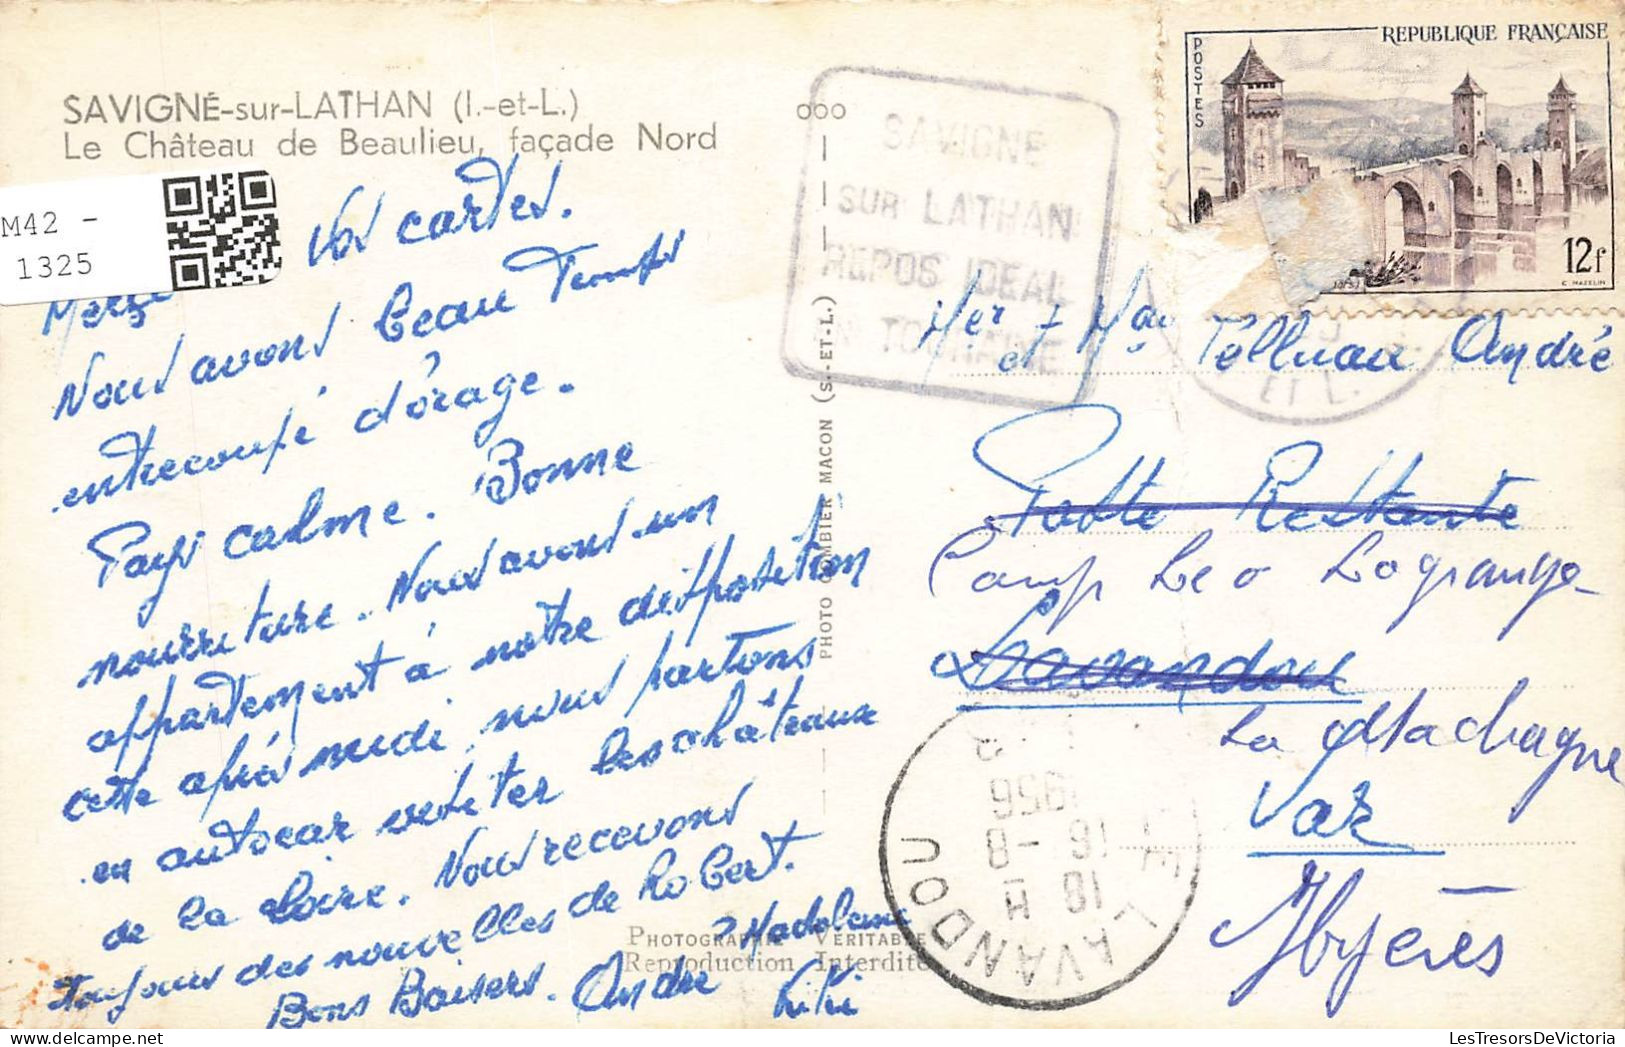 SAVIGNÉ-sur-LATHAN (I.-et-L.)
Le Château de Beaulieu, façade Nord
M42 -
1325
Vos cartes.
Nous avons beau Temps
entrecoupé d'orage.
Pays calme. Bonne
nourriture. Nous avons un
appartement à notre disposition
cette après midi, nous partons
en autocar visiter les châteaux
de la Loire. Nous recevons
Toujours des nouvelles de Robert.
Bons Baisers. André Madeleine
Kiki
PHOTOGRAPHIE VÉRITABLE
Reproduction Interdite
PHOTO COMBIER MACON (S.-ET-L.)
SAVIGNE
SUR LATHAN
REPOS IDEAL
TOURAINE
POSTES
REPUBLIQUE FRANÇAISE
12f
C. MAZELIN
ET L.
André
Poste Restante
Camp Leo Lagrange
Lavandou
La
Var
Hyères
18 H
16 - 8
1956
LAVANDOU
LesTresorsDeVictoria